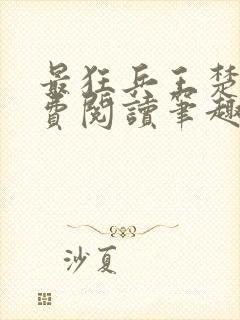 最狂兵王楚
費閱讀筆趣
沙夏